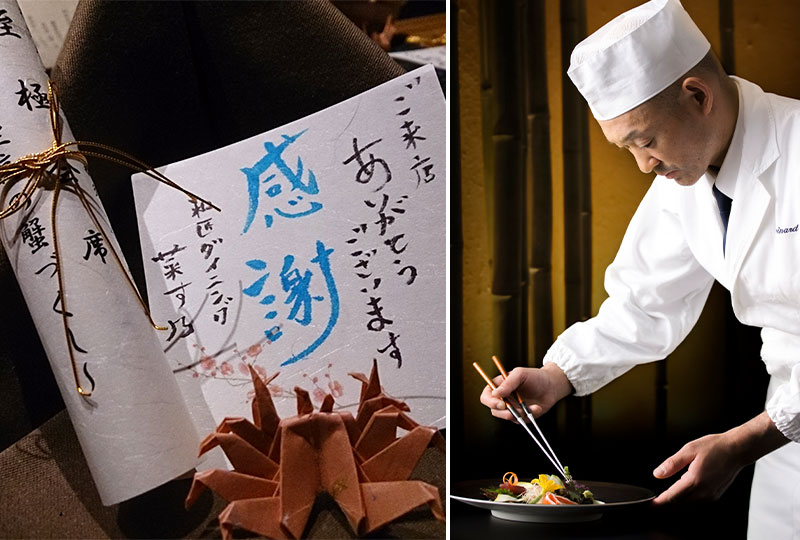 ご来店
ありがとう
ございます
感謝
ダイニング
菜す乃
極
会席
蟹づくし